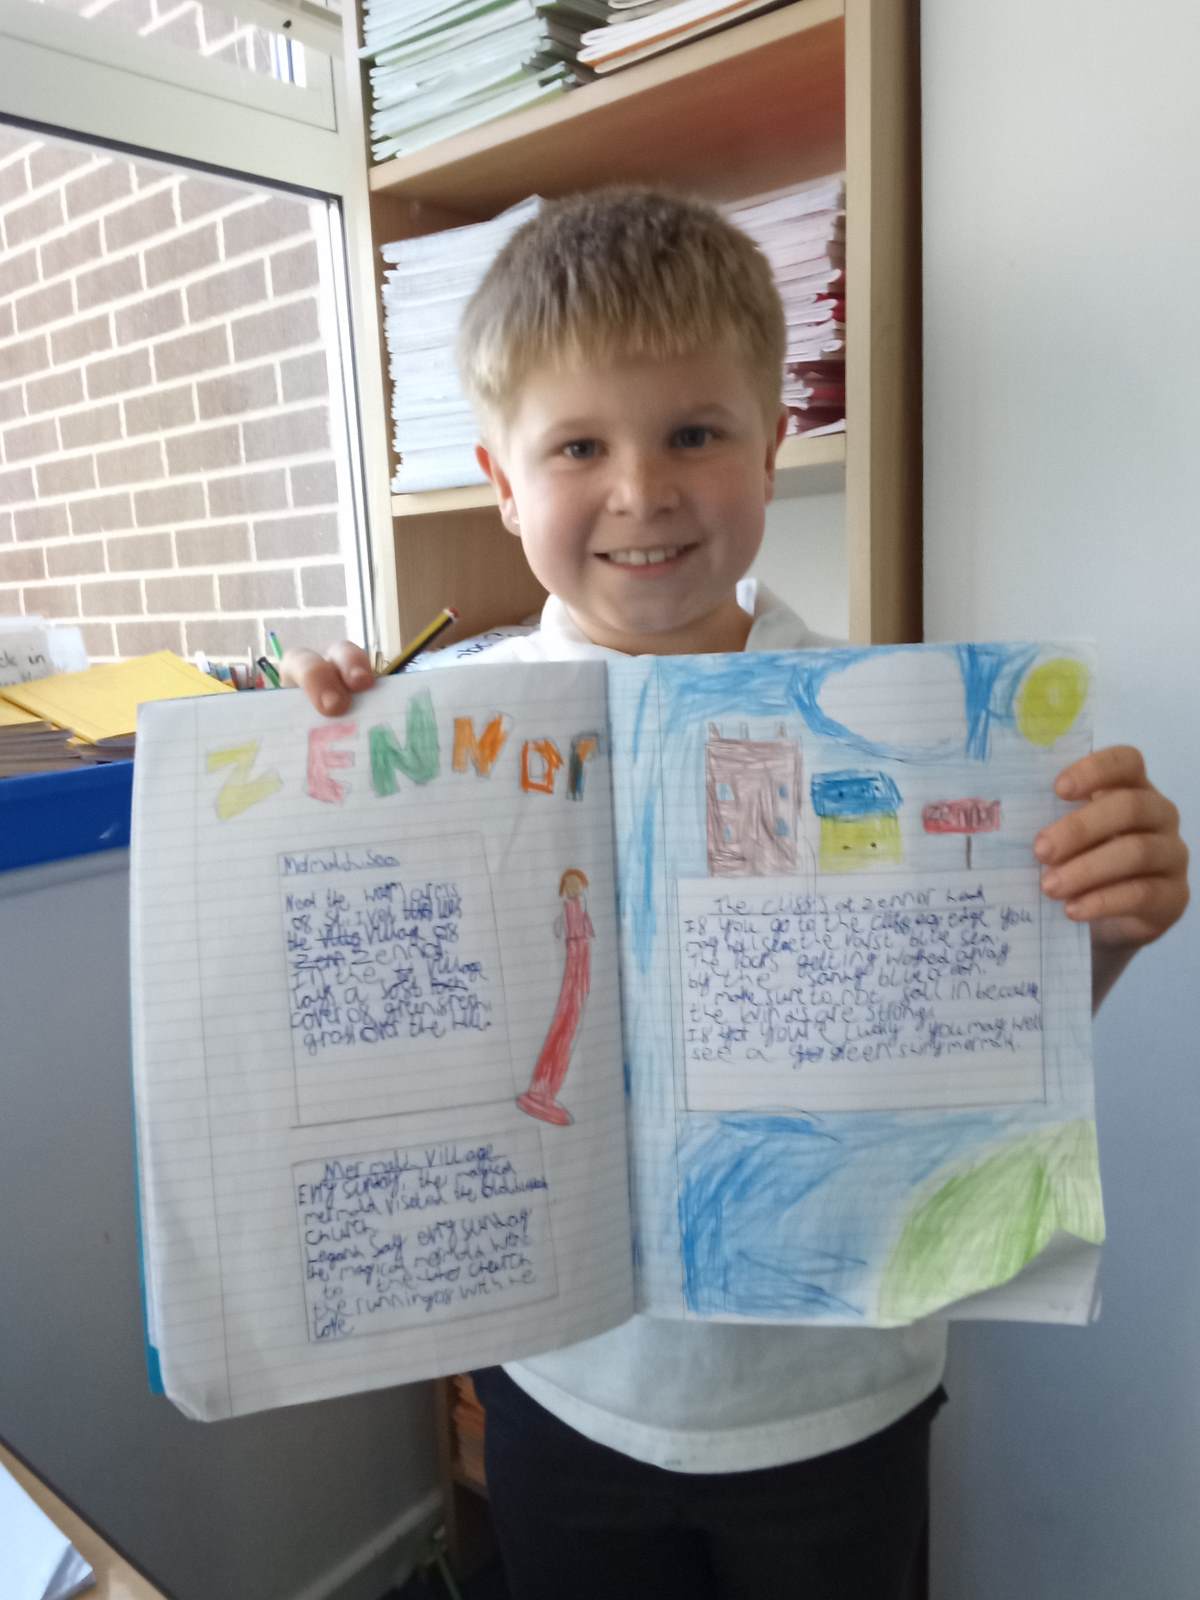 ZENNOr
Mermaids Sea
Near the warm
of St. Ives
the Village of
Zennor
In the village
lays a soft
cover of green fresh
grass over the hill.
Mermaid Village
Evry sunday, the magical
mermaid the
church
Legand say evry sunday
the magical mermaid went
to the church
with
Love
zennor
The cliffs of Zennor head
If you go to the edge you
may well see the varst blue sea.
The rocks getting washed away
by the blue
make sure to not fall in because
the winds are strong.
If you're lucky you may well
see a mermaid.
ck in